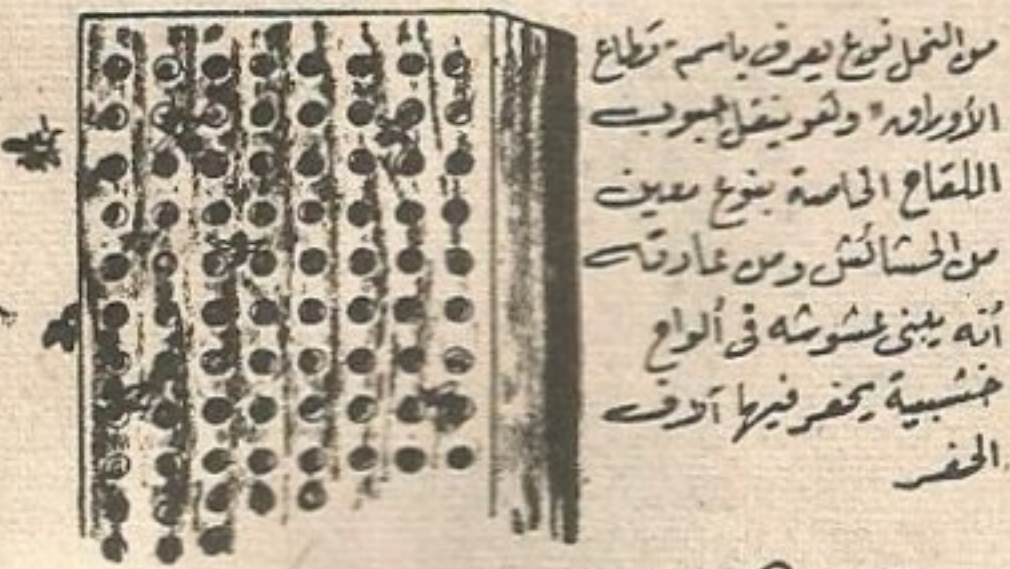 من النحل نوع يعرف باسم "قطاع
الأوراق" وهو ينقل حبوب
اللقاح الخاصة بنوع معين
من الحشائش ومن عادته
أنه يبنى عشوشه فى ألواح
خشبية يحفر فيها آلاف
الحفر